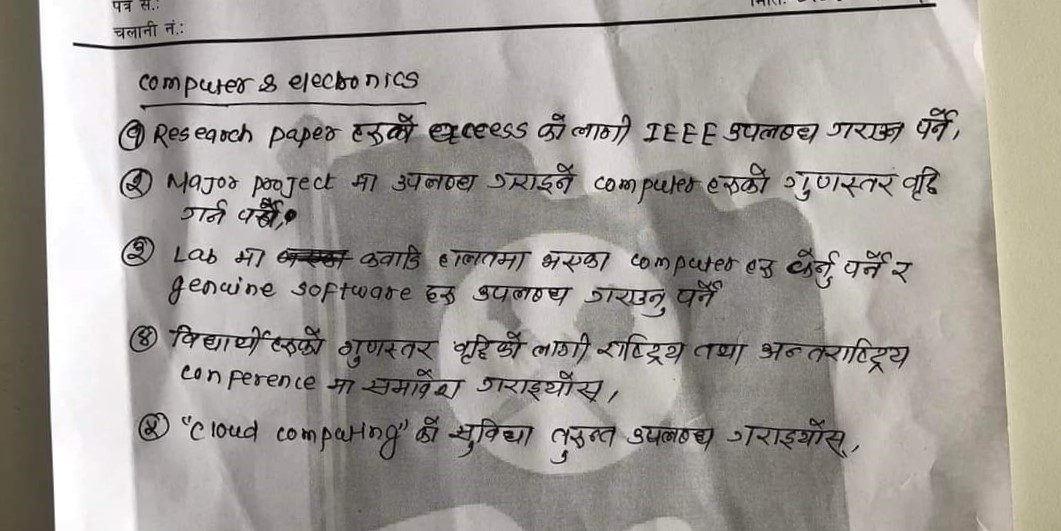 पत्र सं.:
चलानी नं.:
computer & electronics
(१) Research paper हरुको exceess को लागी IEEE उपलब्ध गराउन पर्ने,
(२) Major project मा उपलब्ध गराइने computer हरुको गुणस्तर वृद्दि
गर्न पर्ने,
(३) Lab मा कवाडि हालतमा भएका computer हरु फेर्नु पर्ने र
genuine software हरु उपलब्ध गराउनु पर्ने
(४) विद्यार्थी हरुको गुणस्तर वृद्दिको लागी राष्ट्रिय तथा अन्तराष्ट्रिय
conference मा समावेश गराइयोस्,
(५) "cloud computing" को सुविधा तुरुन्त उपलब्ध गराइयोस्,